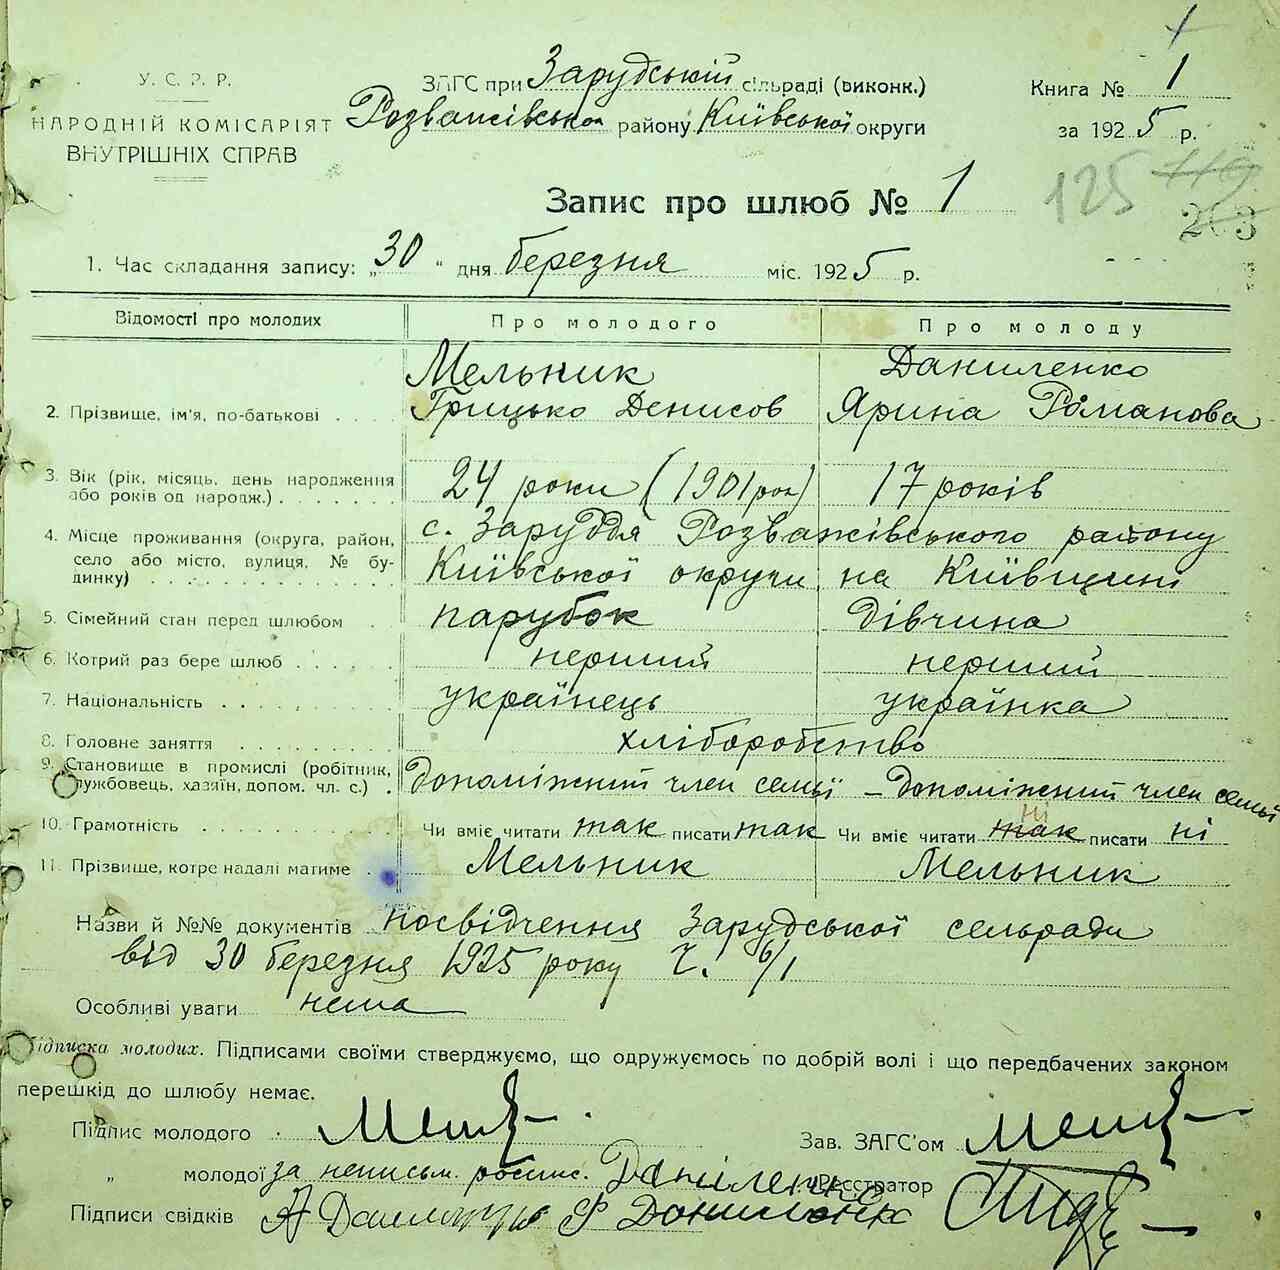 У. С. Р. Р.
НАРОДНІЙ КОМІСАРІЯТ
ВНУТРІШНІХ СПРАВ
ЗАГС при Зарудській сільраді (виконк.)
Розважівського району Київської округи
Книга № 1
за 1925 р.
Запис про шлюб № 1
125 119
203
1. Час складання запису: „30" дня березня міс. 1925 р.
Відомості про молодих Про молодого Про молоду
Мельник Даниленко
2. Прізвище, ім'я, по-батькові Грицько Денисов Ярина Романова
3. Вік (рік, місяць, день народження або років од народж.) 24 роки (1901 рок) 17 років
4. Місце проживання (округа, район, село або місто, вулиця, № будинку) с. Заруддя Розважівського району
Київської округи на Київщині
5. Сімейний стан перед шлюбом парубок дівчина
6. Котрий раз бере шлюб перший перший
7. Національність українець українка
8. Головне заняття хліборобство
9. Становище в промислі (робітник, службовець, хазяїн, допом. чл. с.) допоміжний член семьї – допоміжний член семьї
ні
10. Грамотність Чи вміє читати так писати так Чи вміє читати так писати ні
11. Прізвище, котре надалі матиме Мельник Мельник
Назви й №№ документів посвідчення Зарудської сельради
від 30 березня 1925 року Ч. 6/1
Особливі уваги нема
Підписка молодих. Підписами своїми стверджуємо, що одружуємось по добрій волі і що передбачених законом
перешкід до шлюбу немає.
Підпис молодого Зав. ЗАГС'ом
„ молодої за неписьм. роспис. Даніленко Реєстратор
Підписи свідків Ф Донилонк